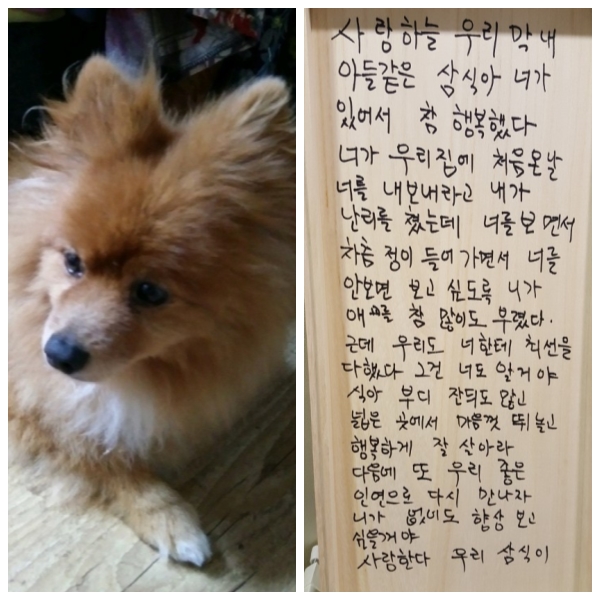 사랑하늘 우리 막내
아들같은 삼식아 너가
있어서 참 행복했다
너가 우리집에 처음온날
너를 내보내라고 내가
난리를 졌는데 너를보면서
차츰 정이 들어가면서 너를
안보면 보고 싶도록 니가
애교를 참 많이도 부렸다.
근데 우리도 너한테 최선을
다했다 그건 너도 알거야
식아 부디 잔듸도 많고
넓은 곳에서 마음껏 뛰놀고
행복하게 잘 살아라
다음에 또 우리 좋은
인연으로 다시 만나자
니가 없이도 향상 보고
싶을거야
사랑한다 우리 삼식이